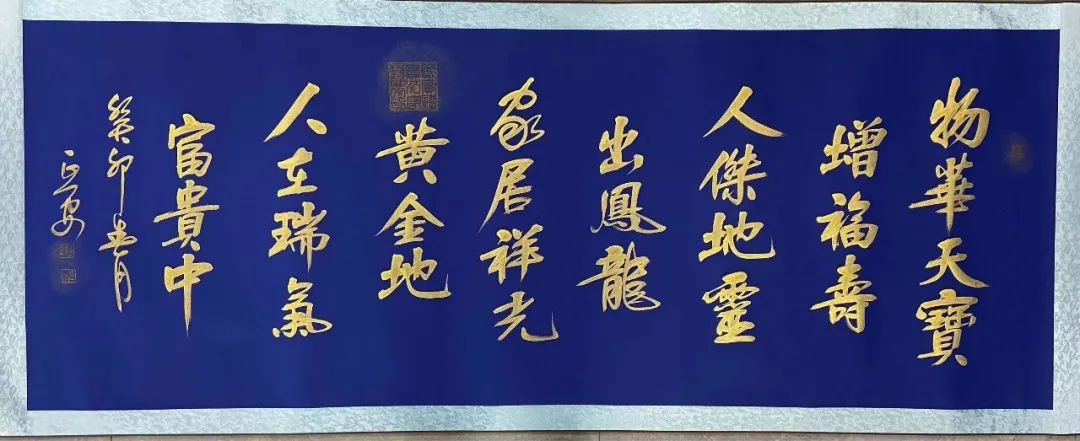 物華天寶
增福壽
人傑地靈
出鳳龍
家居祥光
黄金地
人在瑞氣
富貴中
癸卯春月